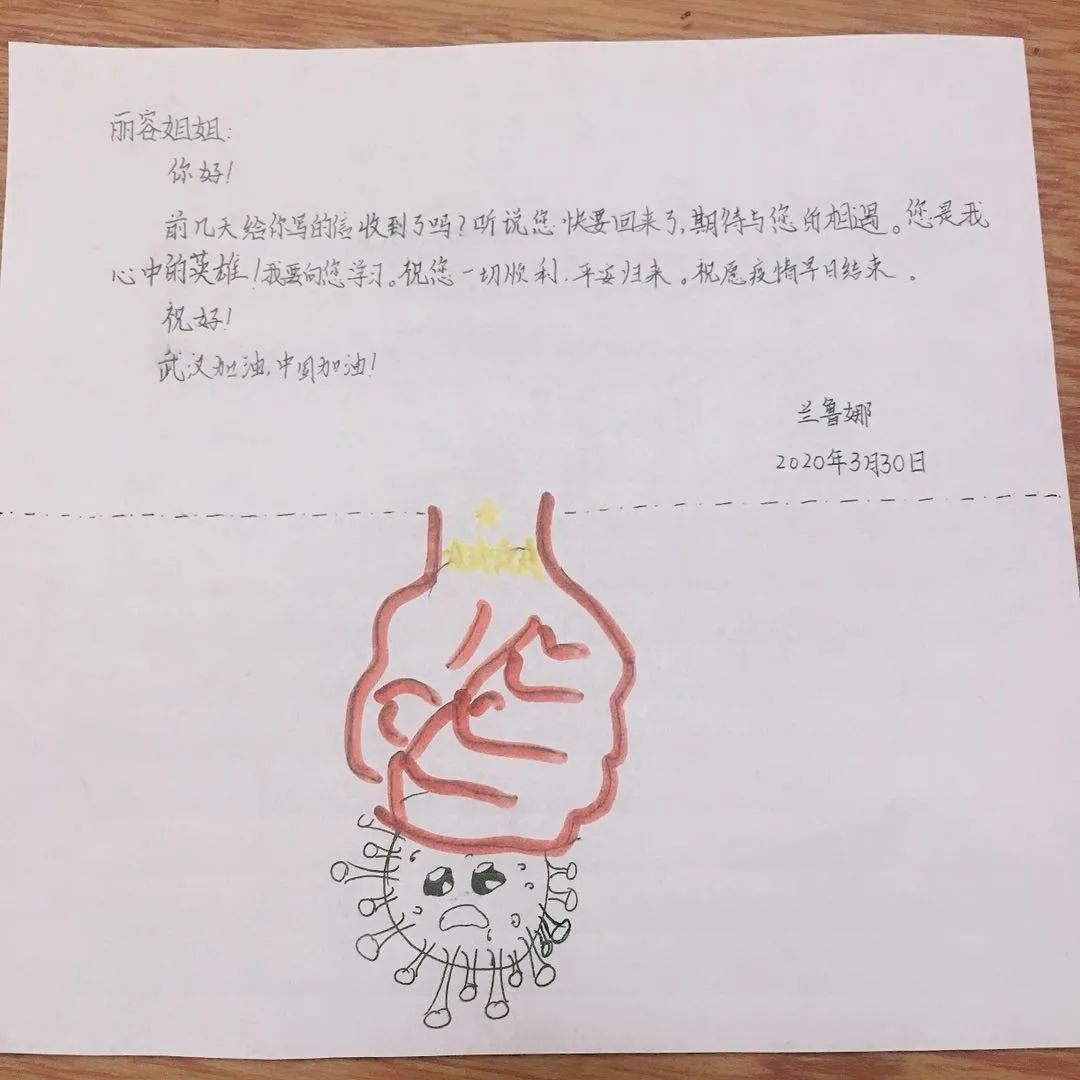 丽容姐姐:
你好!
前几天给你写的信收到了吗?听说您快要回来了,期待与您的相遇。您是我
心中的英雄!我要向您学习。祝您一切顺利.平安归来。祝愿疫情早日结束。
祝好!
武汉加油,中国加油!
兰鲁娜
2020年3月30日